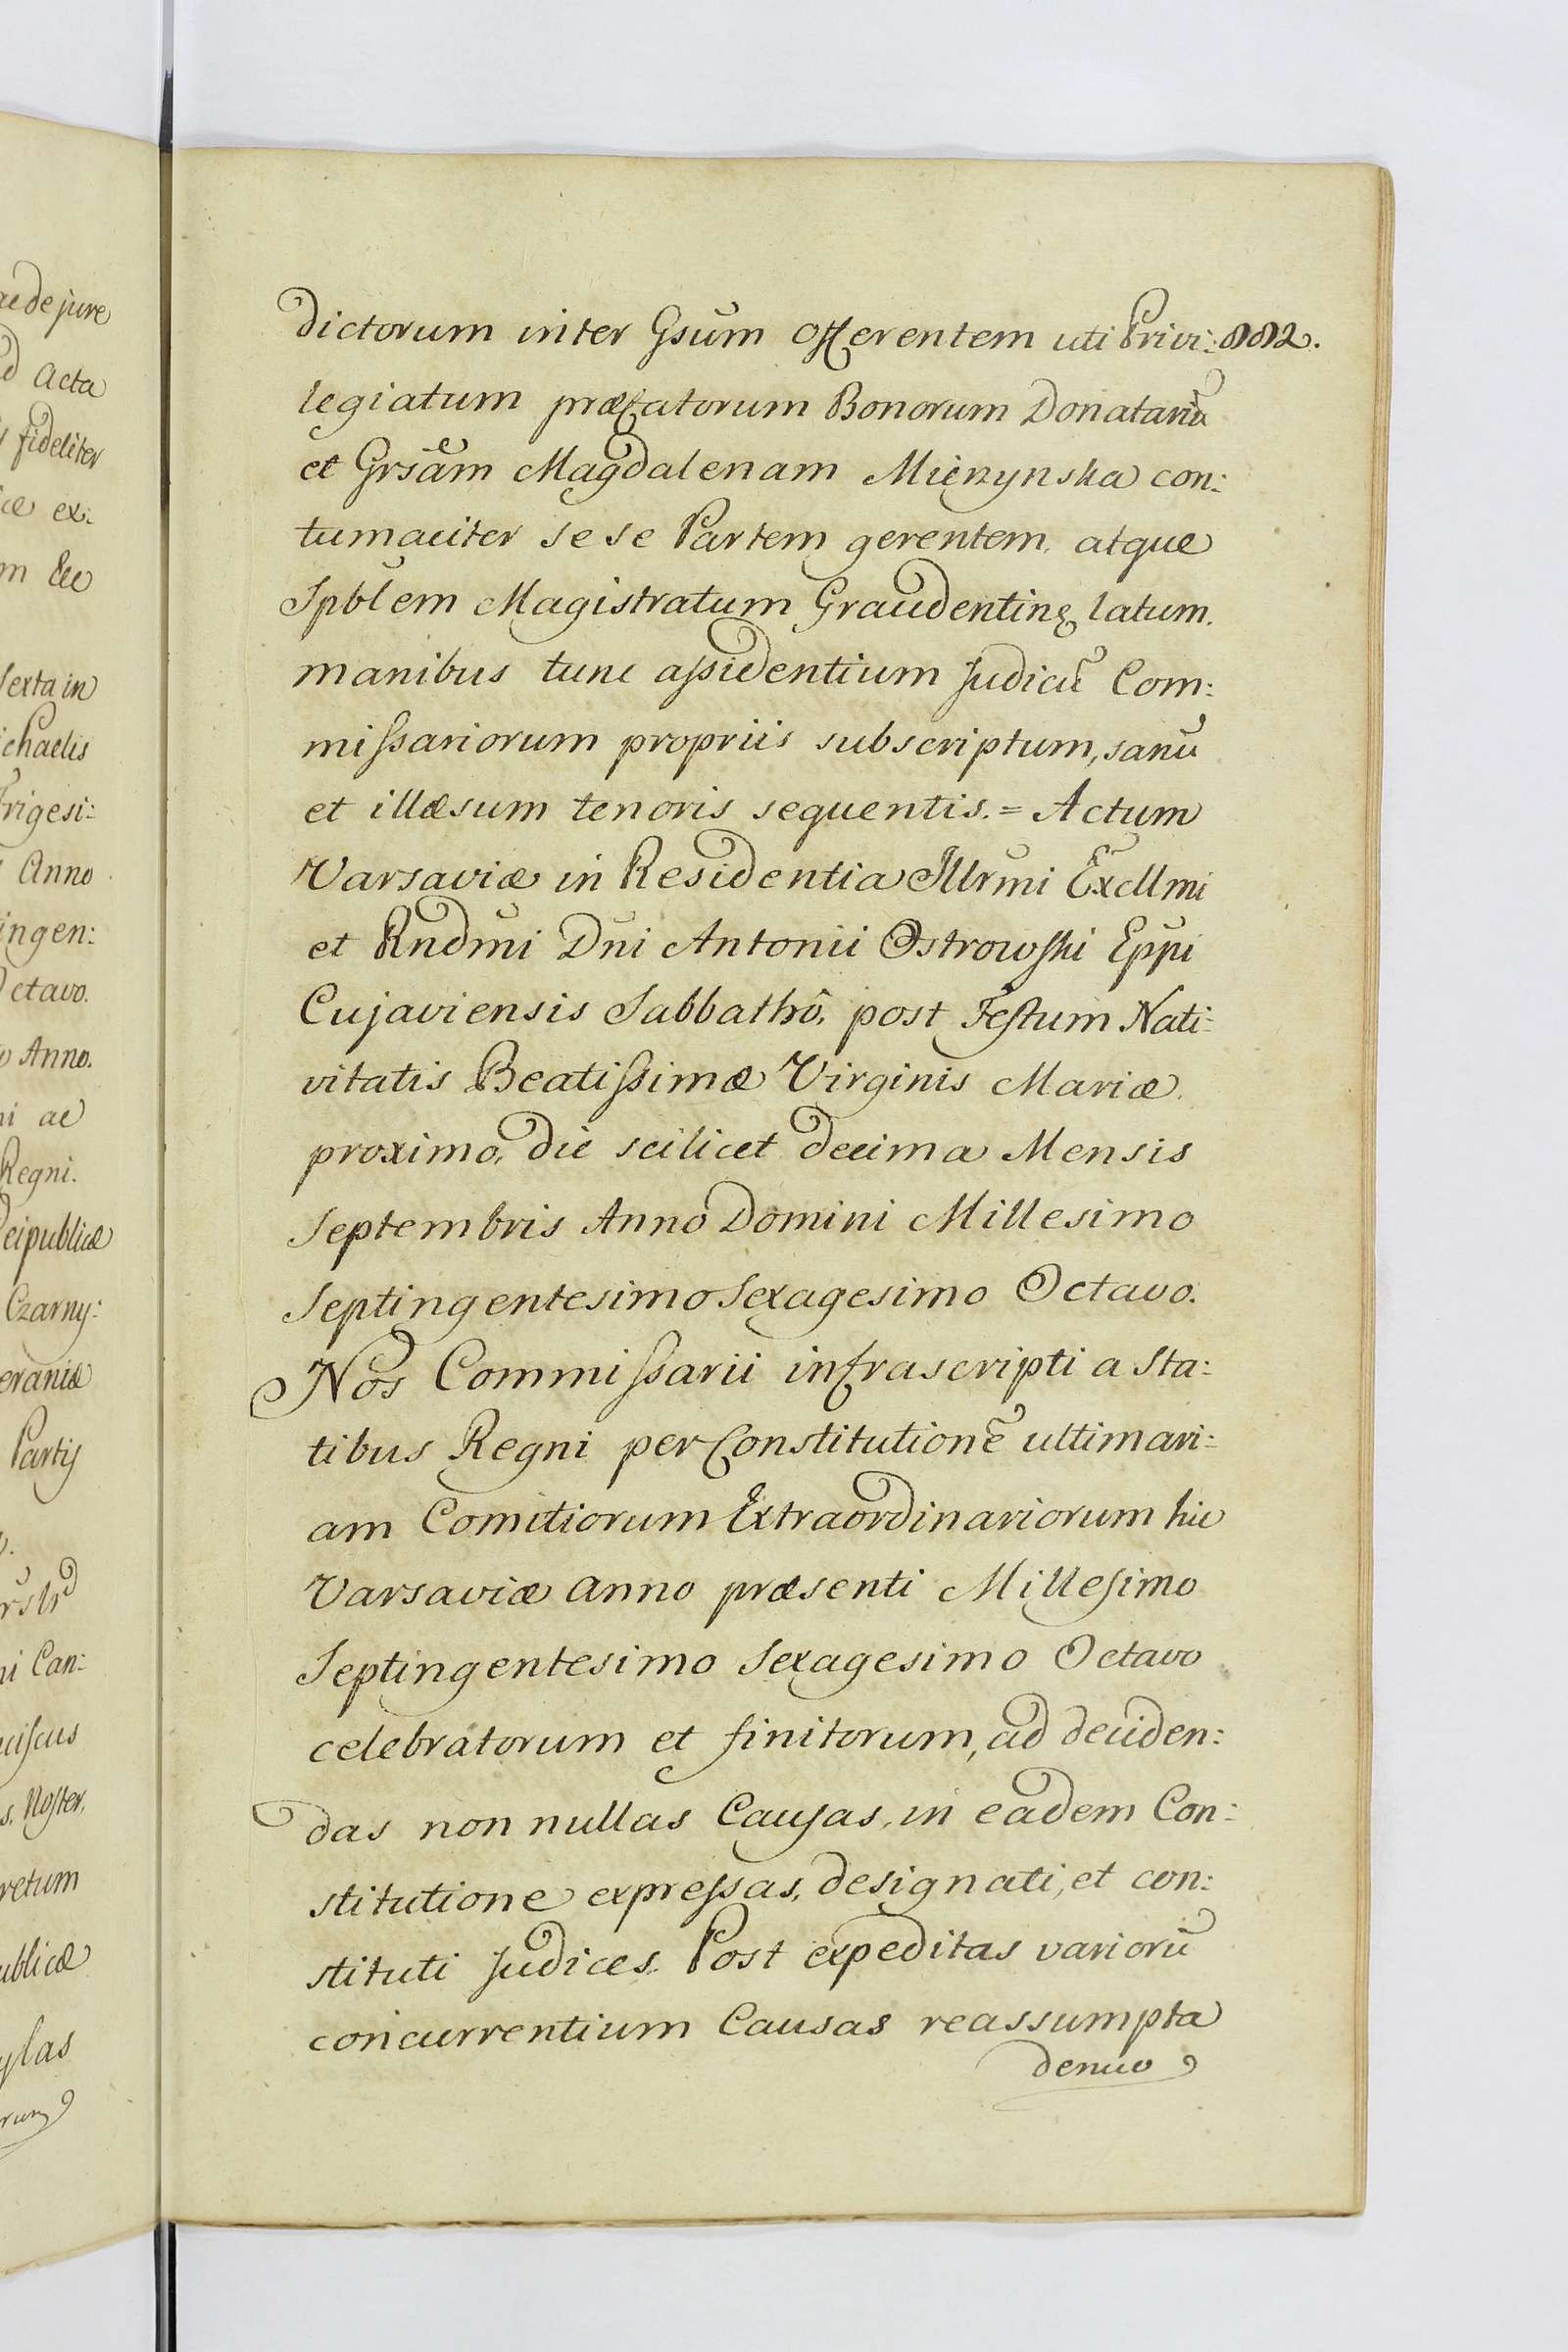 ae de jure
Acta
fideliter
ex:
Sexta in
chaelis
rigesi:
Anno
ingen:
Octavo.
Anno.
ni ac
Regni.
Reipublicæ
Czarny:
eraniæ
Partis
ni Can:
ciscus
s. Noster,
retum
ublicæ
ylas
dictorum inter Gsũm Offerentem uti Privi: 882.
legiatum præfatorum Bonorum Donatariũ
et Grsãm Magdalenam Mięzynska con:
tumaciter sese Partem gerentem, atque
Spblem Magistratum Graudentinẽ latum,
manibus tunc assidentium Judicũ Com:
missariorum propriis subscriptum, sanũ
et illæsum tenoris sequentis. = Actum
Varsaviæ in Residentia Illrmi Excllmi
et Rndmi Dni Antonii Ostrowski Eppi
Cujaviensis Sabbathô, post Festum Nati:
vitatis Beatissimæ Virginis Mariæ
proximo, die scilicet decima Mensis
Septembris Anno Domini Millesimo
Septingentesimo Sexagesimo Octavo.
Nos Commissarii infrascripti a Sta:
tibus Regni per Constitutionẽ ultimari:
am Comitiorum Extraordinariorum hic
Varsaviæ anno præsenti Millesimo
Septingentesimo Sexagesimo Octavo
celebratorum et finitorum, ad deciden:
das non nullas Causas, in eadem Con:
stitutione expressas, designati, et con:
stituti Judices. Post expeditas variorũ
concurrentium Causas reassumpta
denuo